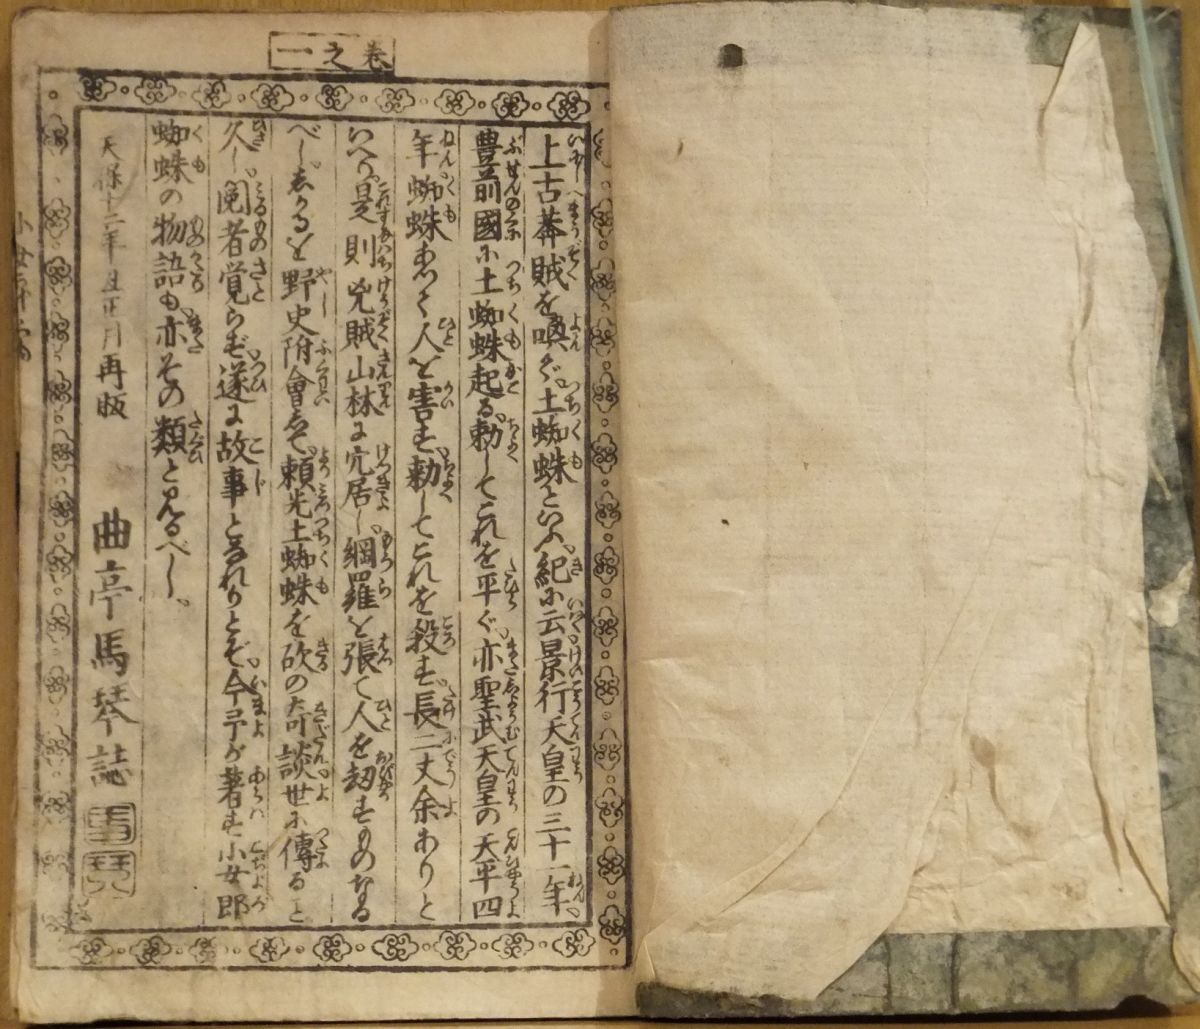 巻之一
上古莽賊を喚で、土蜘蛛といふ。紀に云景行天皇の三十一年、
豊前國に土蜘蛛起る。勅してこれを平ぐ。亦聖武天皇の天平四
年、蜘蛛あつて人を害す。勅してこれを殺す。長二丈余ありと
いへり。是則兇賊山林に穴居し、綱羅を張て人を劫すものなる
べし。しかるを野史附會して、頼光土蜘蛛を砍の奇談、世に傳ること
久し。閲者覚らず、遂に故事となれりとぞ。今予が著す小女郎
蜘蛛の物語も、亦その類と見るべし。
天保十二年丑正月再版
曲亭馬琴誌